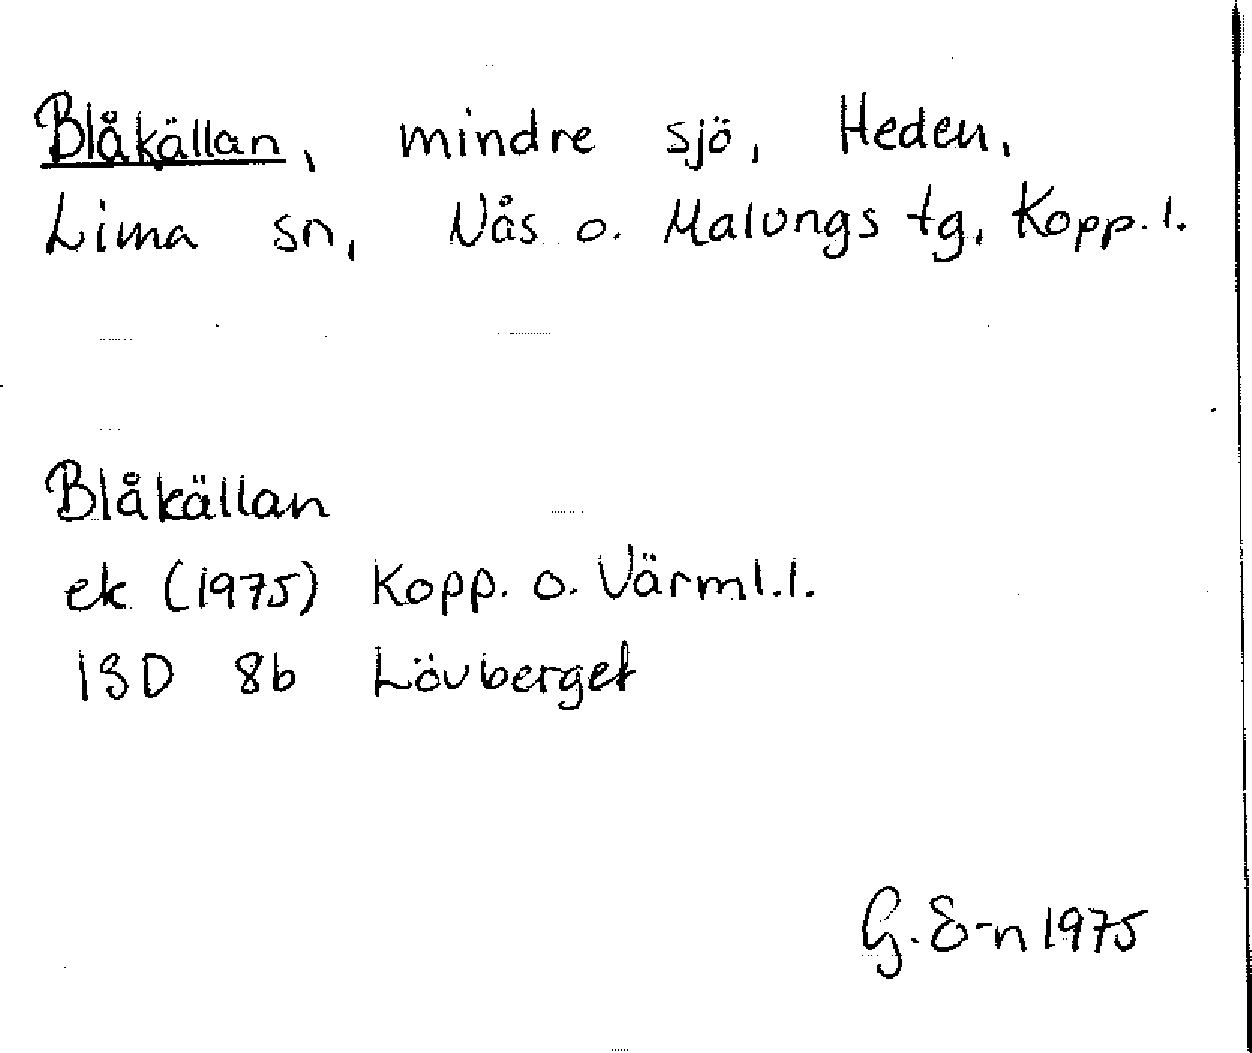 Blåkällan, mindre sjö, Heden,
Lima sn, Nås o. Malungs tg, Kopp. l.
Blåkällan
ek (1975) Kopp. o. Värml. l.
13D 8b Lövberget
G. E-n 1975